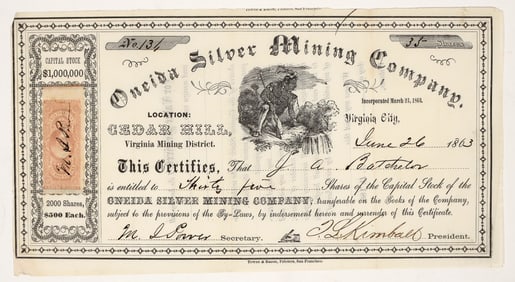 No. 134
35 Shares
CAPITAL STOCK
$1,000,000
Oneida Silver Mining Company,
LOCATION:
CEDAR HILL,
Virginia Mining District.
Incorporated March 25, 1863.
Virginia City,
June 26 1863
This Certifies, That J. A. Batchelor
is entitled to Thirty five Shares of the Capital Stock of the
ONEIDA SILVER MINING COMPANY; transferable on the Books of the Company,
subject to the provisions of the By-Laws, by indorsement hereon and surrender of this Certificate.
2000 Shares,
$500 Each.
Secretary.
President.
Towne & Bacon, Printers, San Francisco.